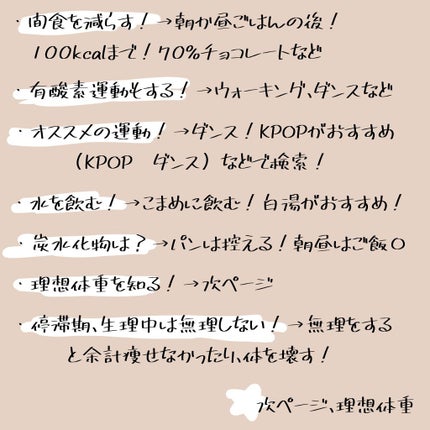 ・間食を減らす！→朝か昼ごはんの後！
100kcalまで！70%チョコレートなど
・有酸素運動もする！→ウォーキング、ダンスなど
・オススメの運動！→ダンス！KPOPがおすすめ
（KPOP　ダンス）などで検索！
・水を飲む！→こまめに飲む！白湯がおすすめ！
・炭水化物は？→パンは控える！朝昼はご飯〇
・理想体重を知る！→次ページ
・停滞期、生理中は無理しない！→無理をする
と余計痩せなかったり、体を壊す！
次ページ、理想体重